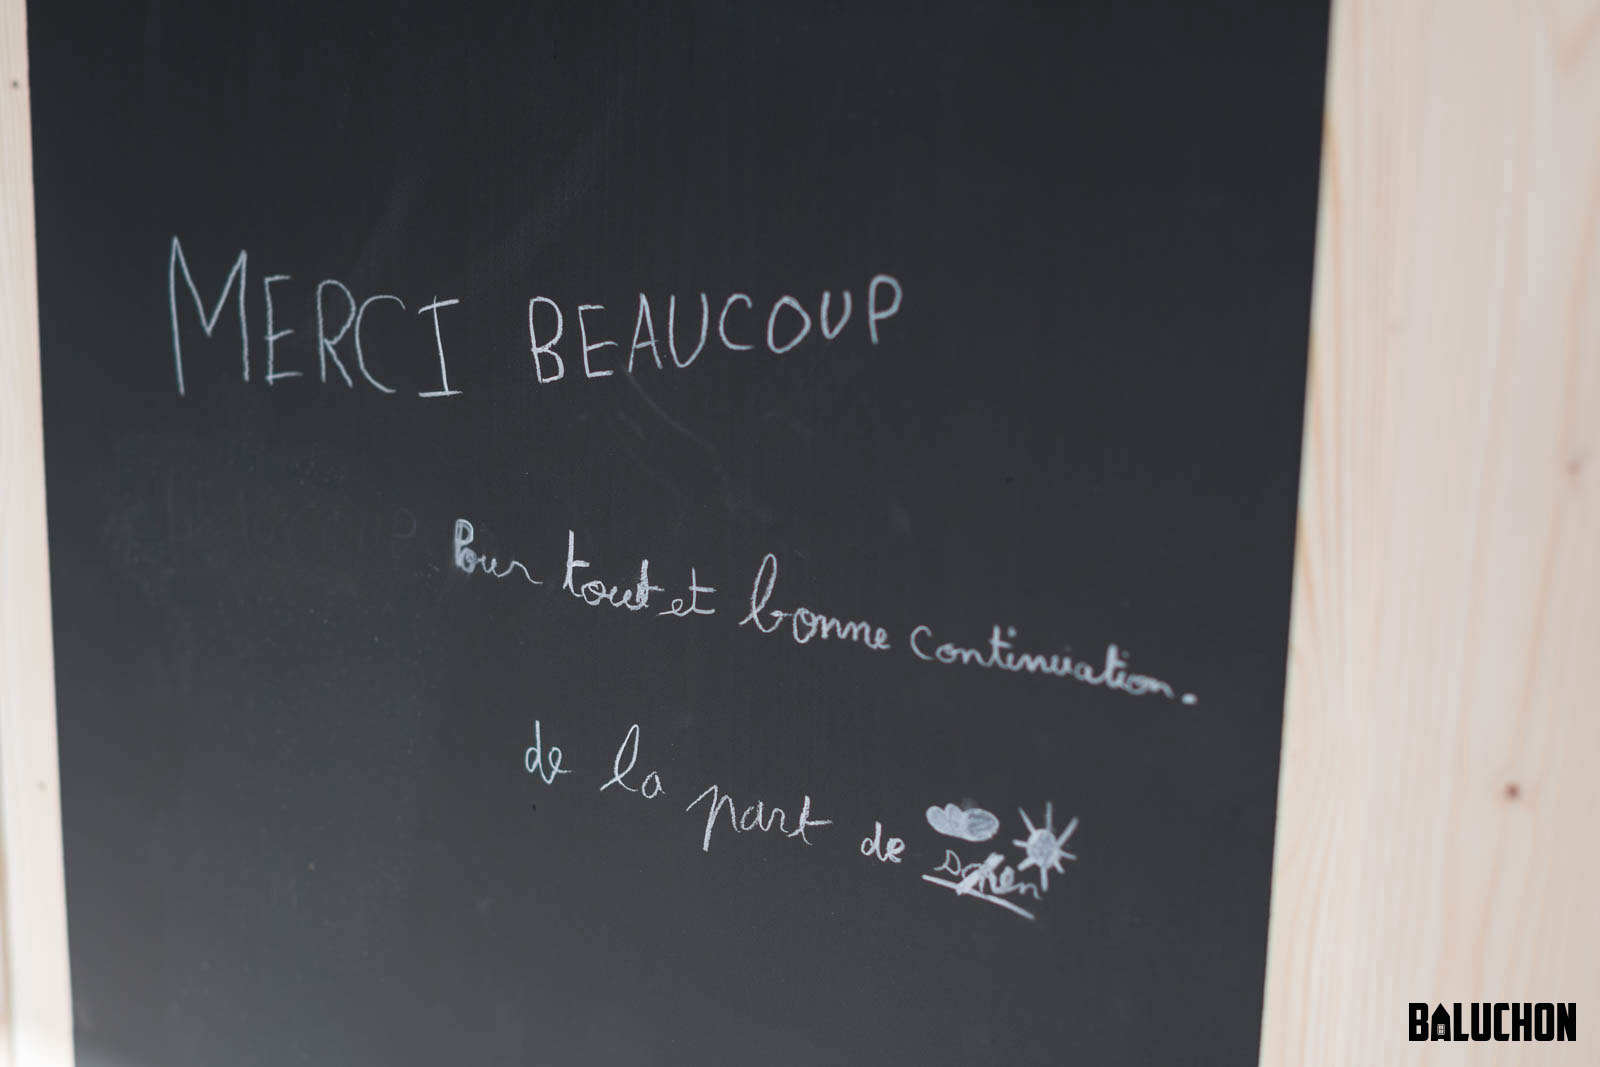 MERCI BEAUCOUP
BEAUCOUP
Pour tout et bonne continuation.
de la part de
BALUCHON